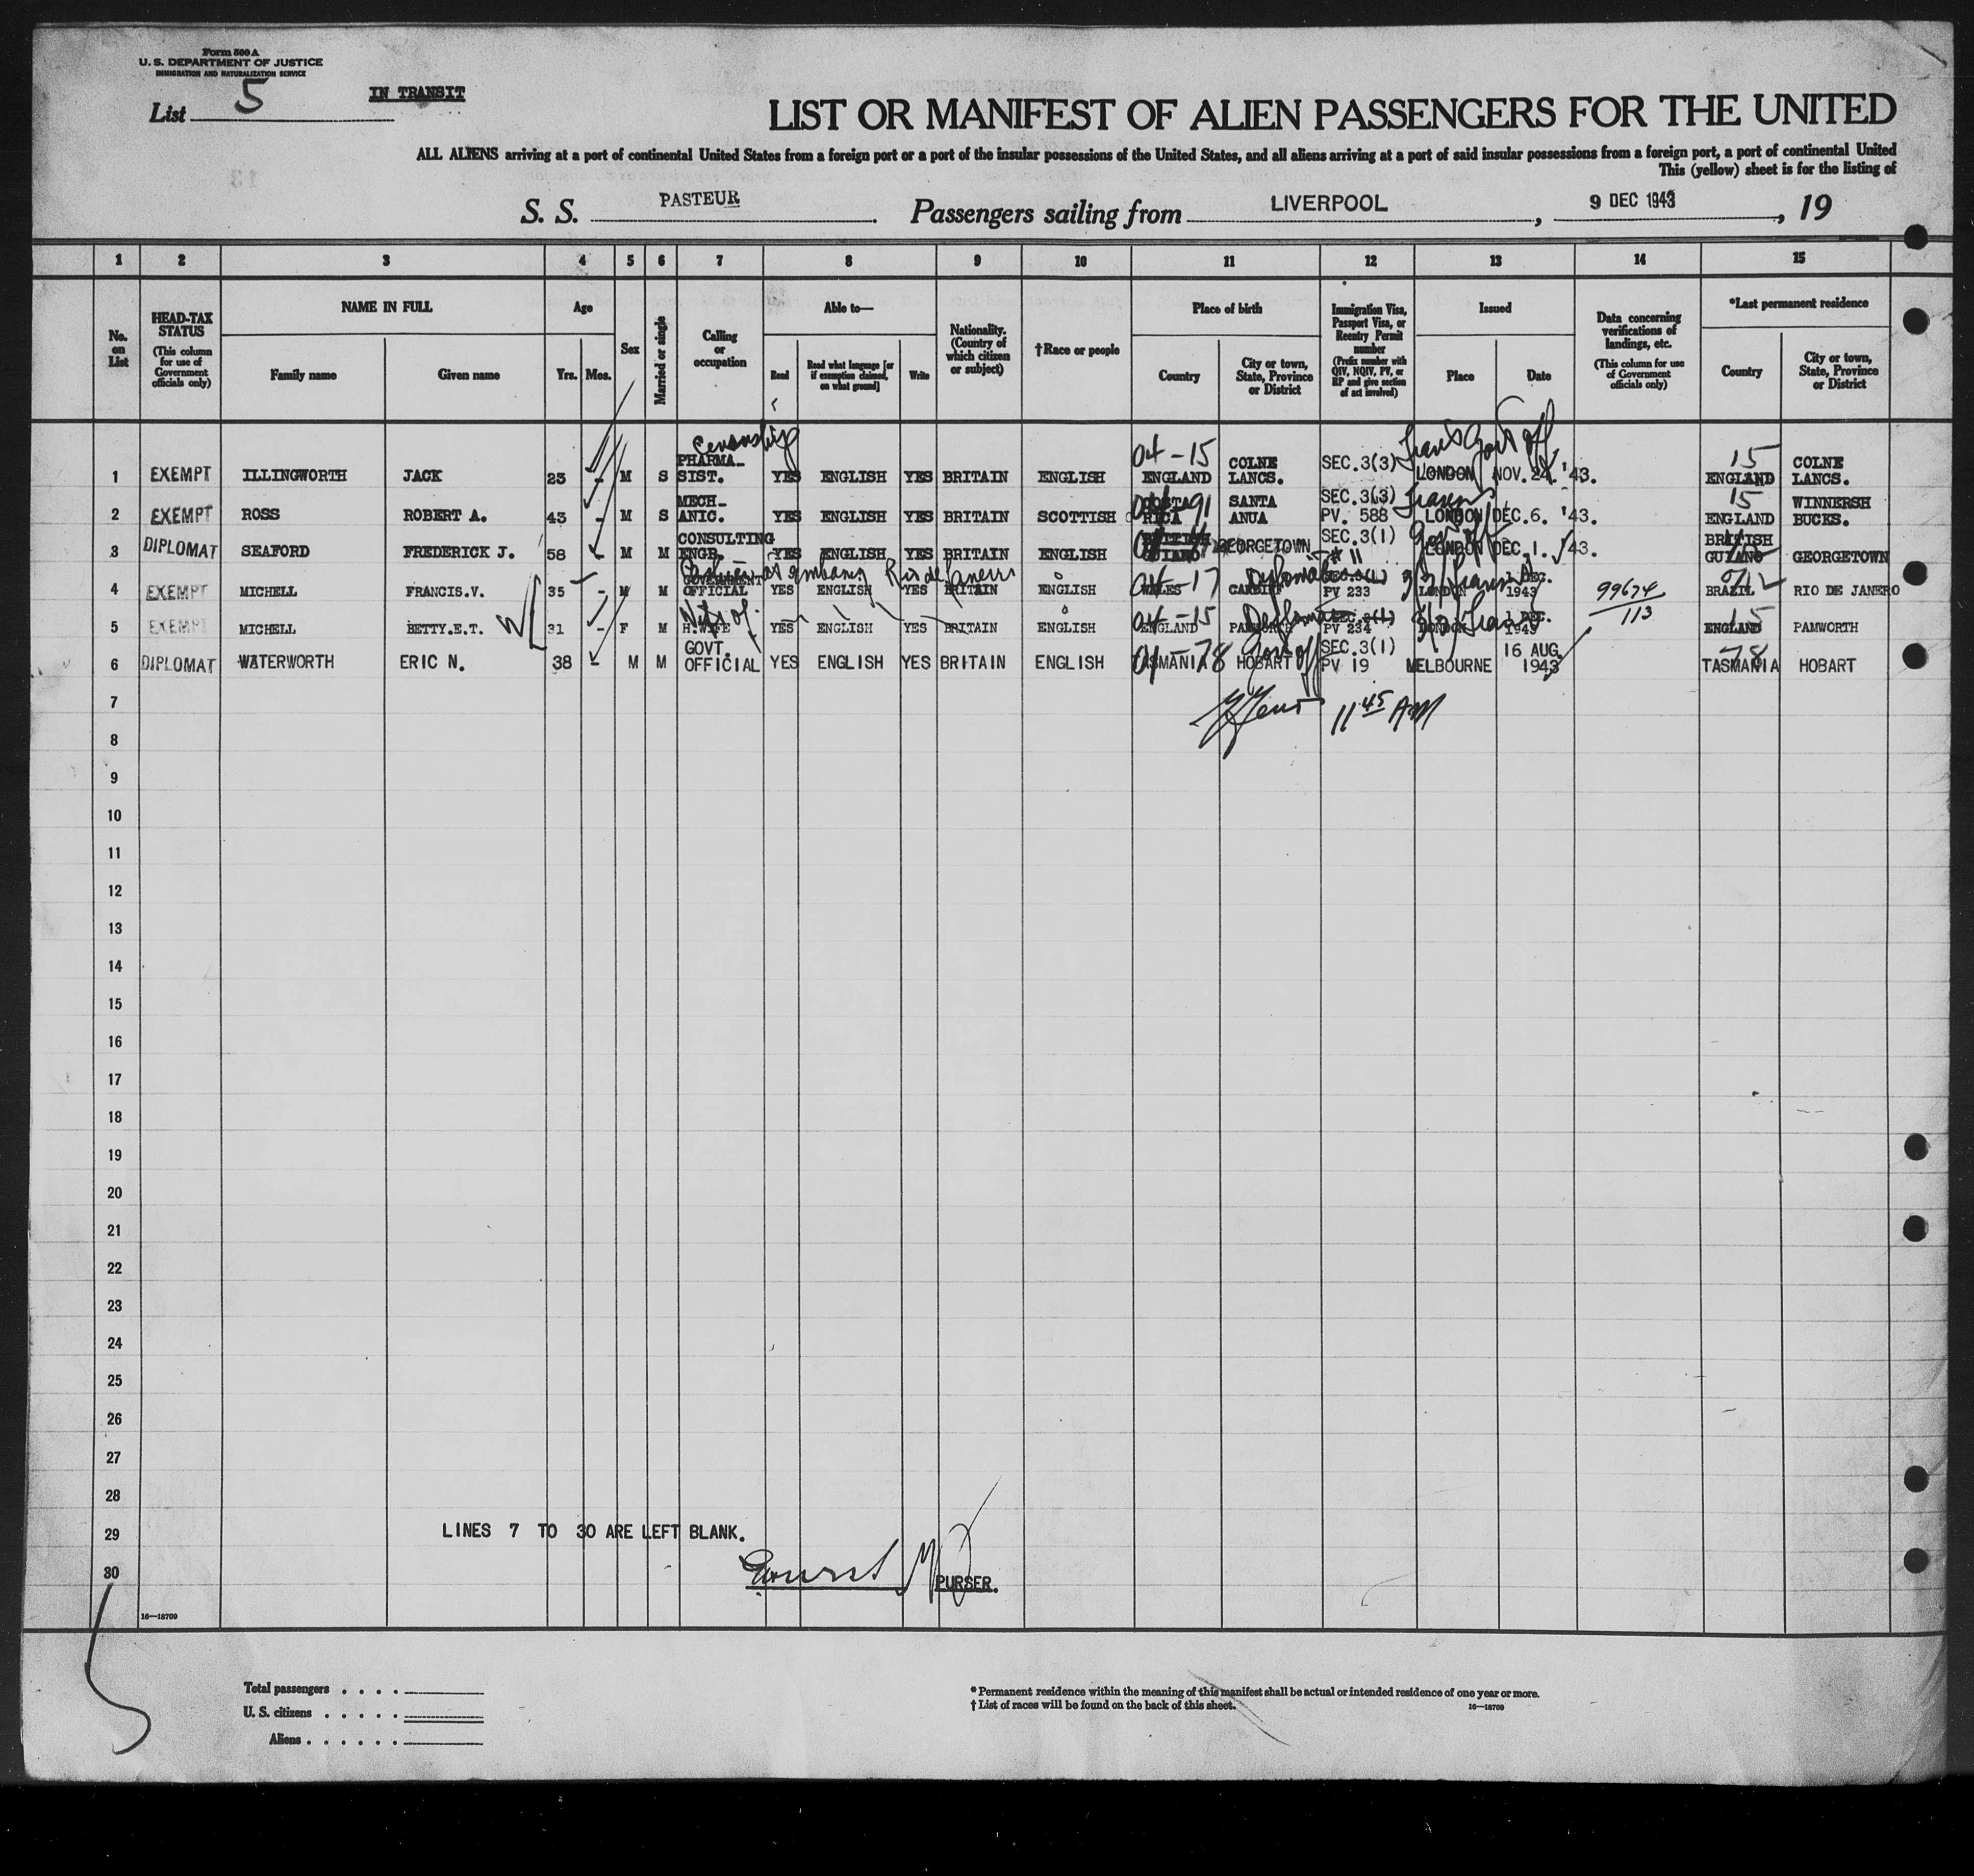 Form 500 A
U. S. DEPARTMENT OF JUSTICE
IMMIGRATION AND NATURALIZATION SERVICE
List 5
IN TRANSIT
LIST OR MANIFEST OF ALIEN PASSENGERS FOR THE UNITED
ALL ALIENS arriving at a port of continental United States from a foreign port or a port of the insular possessions of the United States, and all aliens arriving at a port of said insular possessions from a foreign port, a port of continental United
This (yellow) sheet is for the listing of
S. S. PASTEUR. Passengers sailing from LIVERPOOL, 9 DEC 1943, 19
1 2 3 4 5 6 7 8 9 10 11 12 13 14 15
No. on List
HEAD-TAX STATUS (This column for use of Government officials only)
NAME IN FULL
Family name
Given name
Age
Yrs.
Mos.
Sex
Married or single
Calling or occupation
Able to—
Read
Read what language [or if exemption claimed, on what ground]
Write
Nationality. (Country of which citizen or subject)
† Race or people
Place of birth
Country
City or town, State, Province or District
Immigration Visa, Passport Visa, or Reentry Permit number (Prefix number with QIV, NQIV, PV, or RP and give section of act involved)
Issued
Place
Date
Data concerning verifications of landings, etc. (This column for use of Government officials only)
*Last permanent residence
Country
City or town, State, Province or District
Censorship
1 EXEMPT ILLINGWORTH JACK 23 - M S PHARMA- SIST. YES ENGLISH YES BRITAIN ENGLISH 04-15 ENGLAND COLNE LANCS. SEC.3(3) LONDON NOV. 24. '43. 15 ENGLAND COLNE LANCS.
2 EXEMPT ROSS ROBERT A. 43 - M S MECH- ANIC. YES ENGLISH YES BRITAIN SCOTTISH COSTA RICA SANTA ANUA SEC.3(3) PV. 588 LONDON DEC.6. '43. 15 ENGLAND WINNERSH BUCKS.
3 DIPLOMAT SEAFORD FREDERICK J. 58 - M M CONSULTING ENGR. YES ENGLISH YES BRITAIN ENGLISH GEORGETOWN SEC.3(1) LONDON DEC.1. '43. BRITISH GUIANO GEORGETOWN
4 EXEMPT MICHELL FRANCIS.V. 35 - M M GOVERNMENT OFFICIAL YES ENGLISH YES BRITAIN ENGLISH 04-17 WALES CARDIFF SEC.3(1) PV 233 LONDON 1 DEC. 1943 99674/113 BRAZIL RIO DE JANERO
5 EXEMPT MICHELL BETTY.E.T. 31 - F M Wife of H.WIFE YES ENGLISH YES BRITAIN ENGLISH 04-15 ENGLAND SEC.3(1) PV 234 LONDON 1 DEC. 1943 15 ENGLAND PAMWORTH
6 DIPLOMAT WATERWORTH ERIC N. 38 - M M GOVT. OFFICIAL YES ENGLISH YES BRITAIN ENGLISH TASMANIA HOBART SEC.3(1) PV 19 MELBOURNE 16 AUG 1943 78 TASMANIA HOBART
7 11 45 AM
8
9
10
11
12
13
14
15
16
17
18
19
20
21
22
23
24
25
26
27
28
29 LINES 7 TO 30 ARE LEFT BLANK.
30 PURSER.
16—18709
Total passengers . . . .
U. S. citizens . . . . .
Aliens . . . . . .
* Permanent residence within the meaning of this manifest shall be actual or intended residence of one year or more.
† List of races will be found on the back of this sheet.
16—18709